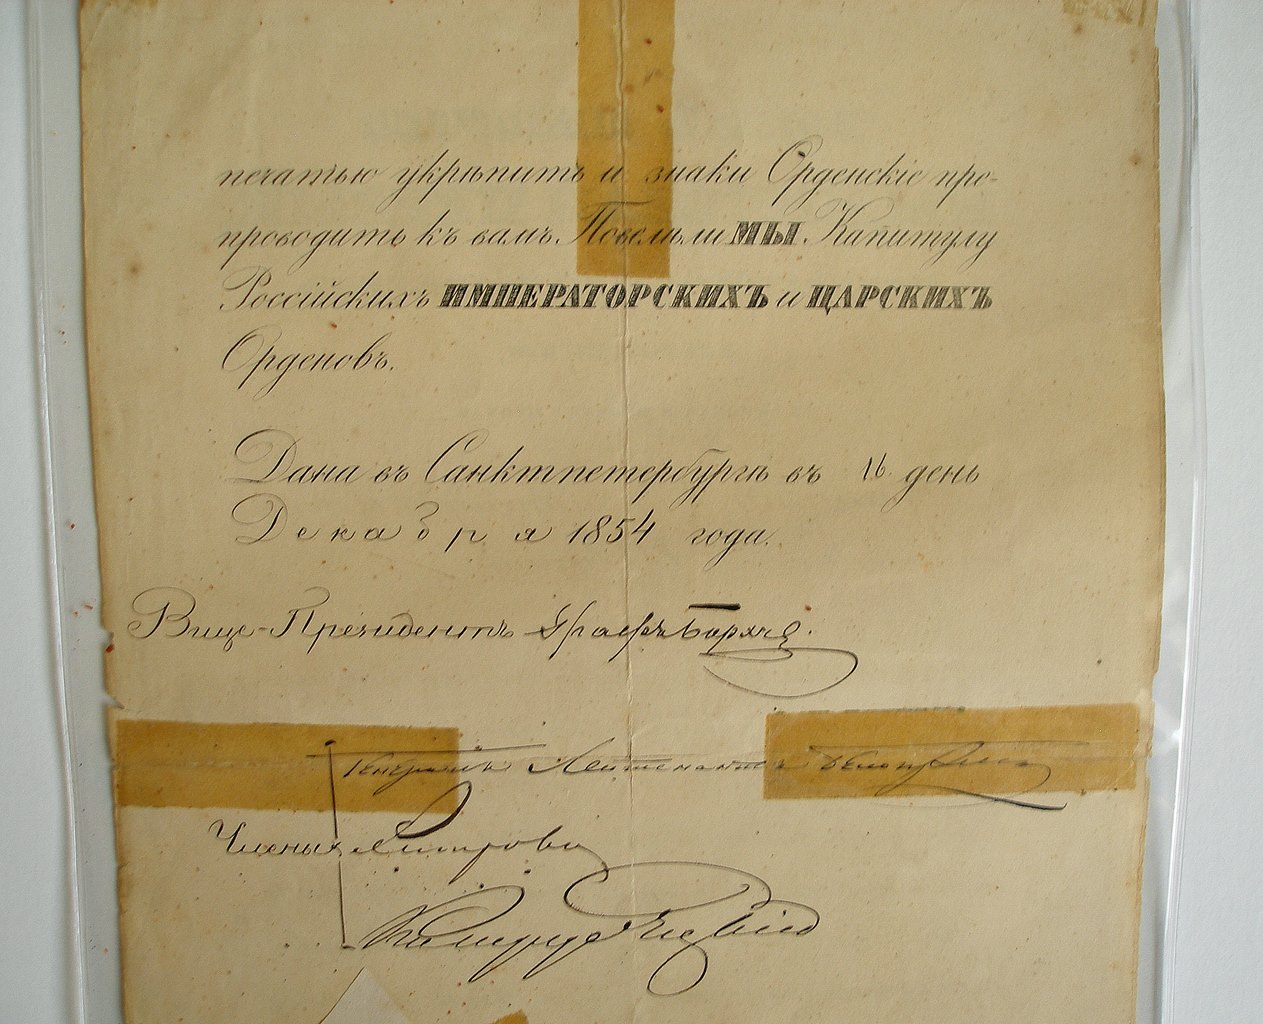 печатью укрѣпить и знаки Орденскіе про-
проводить къ вамъ. Повелѣли МЫ Капитулу
Россійскихъ ИМПЕРАТОРСКИХЪ и ЦАРСКИХЪ
Орденовъ.
Дана въ Санктпетербургѣ въ 16 день
Декабря 1854 года.
Вице-Президентъ Графъ Борхъ
Генералъ Лейтенантъ
Члены